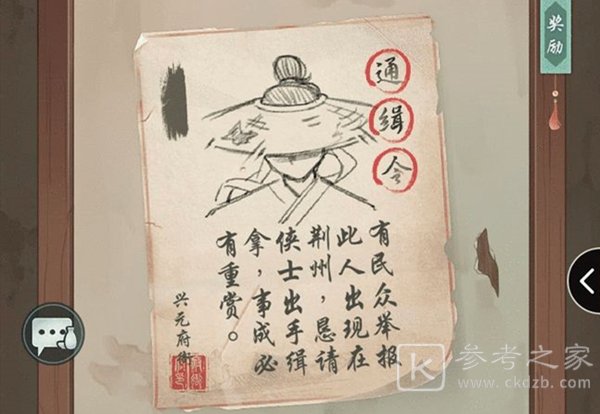 通缉令
有民众举报
此人出现在
荆州，恳请
侠士出手缉
拿，事成必
有重赏。
兴元府衙
奖励
K 参考之家
www.ckdzb.com